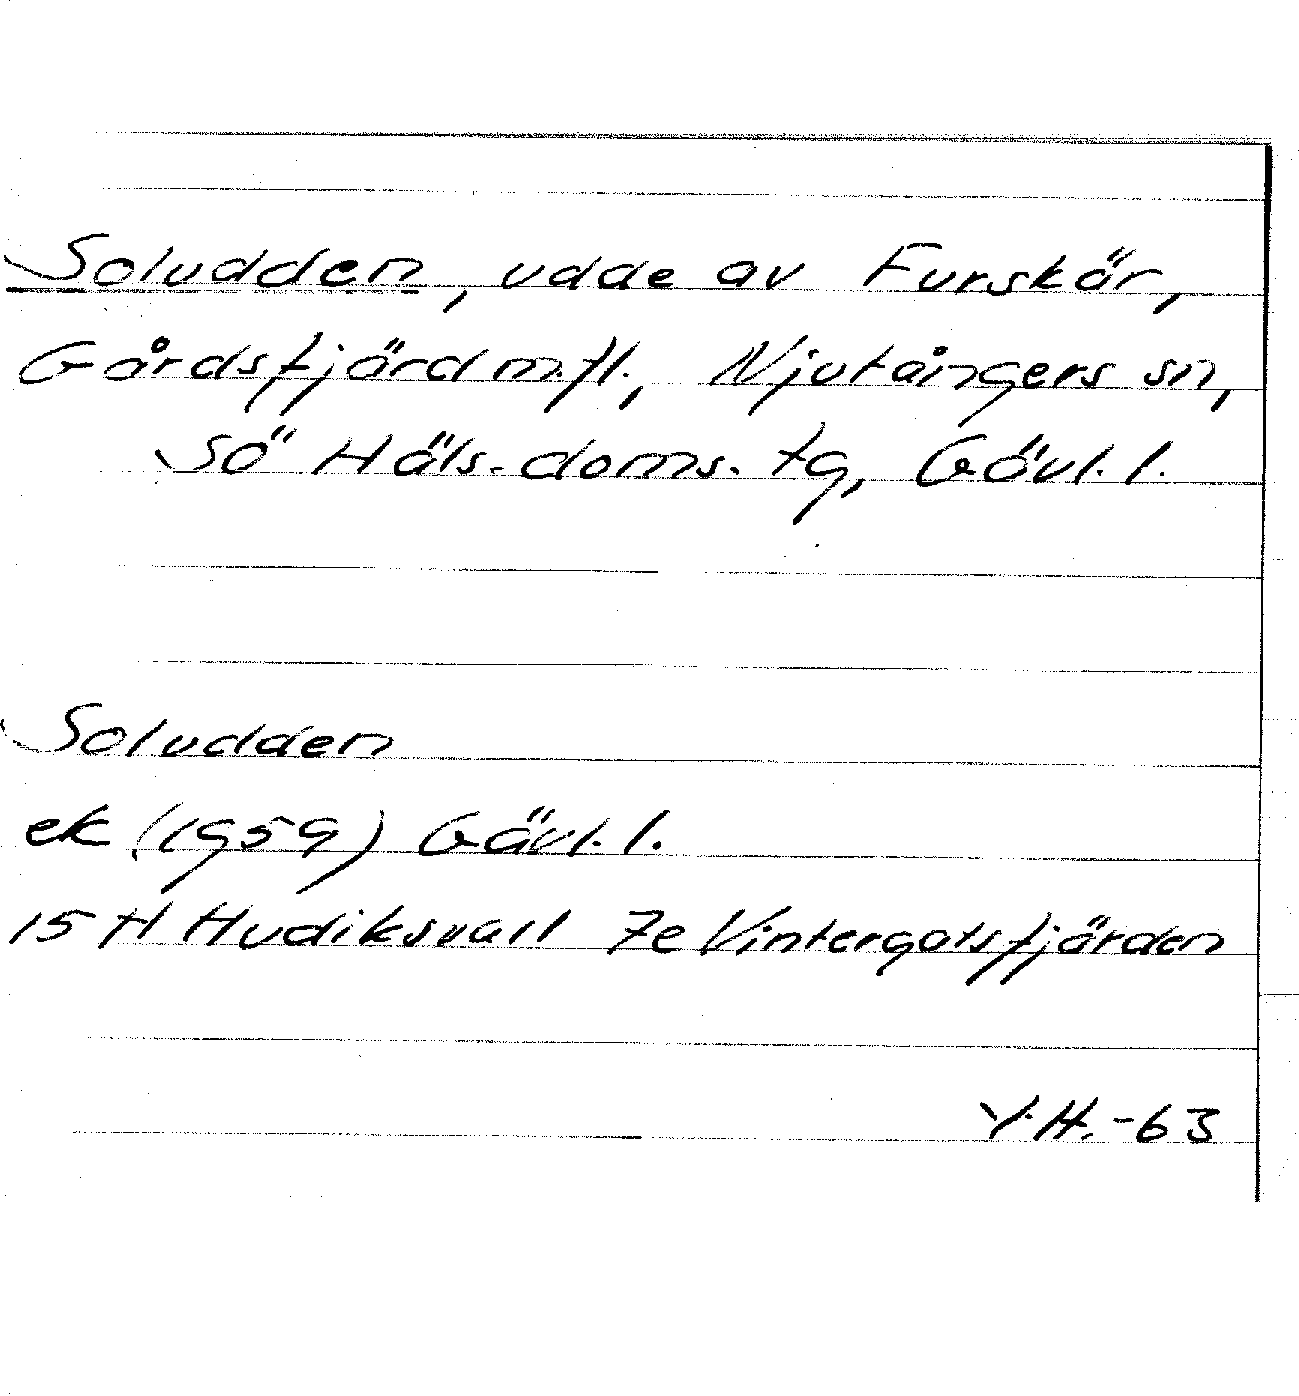 Soludden, udde av Furskär,
Gårdsfjärd m.fl., Njutångers sn,
Sö Häls. doms. tg, Gävl. l.
Soludden
ek (1959) Gävl. l.
15 H Hudiksvall 7e Vintergatsfjärden
Y.H. -63